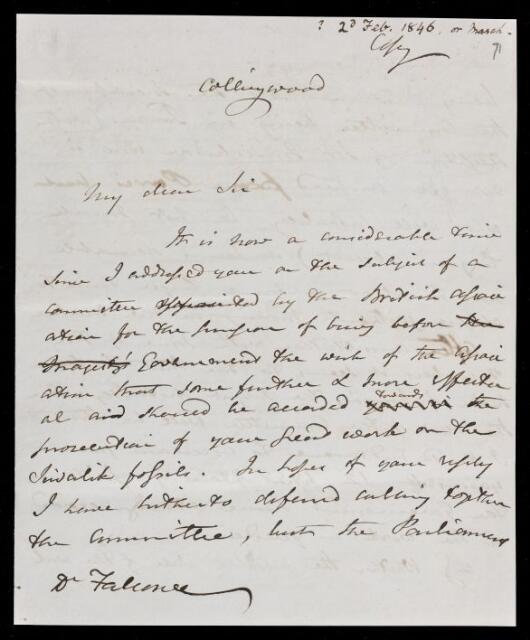 ? 2d Feb. 1846. or March.
Copy
71
Collingwood
My dear Sir
It is now a considerable time
since I addressed you on the subject of a
committee appointed by the British Associ
ation for the purpose of being before the
Majesty's Government the wish of the Associ
ation that some further & more effectu
al aid should be accorded towards the
prosecution of your great work on the
Sivalik fossils. In hopes of your reply
I have hitherto deferred calling together
the Committee, but the Parliament
Dr Falconer